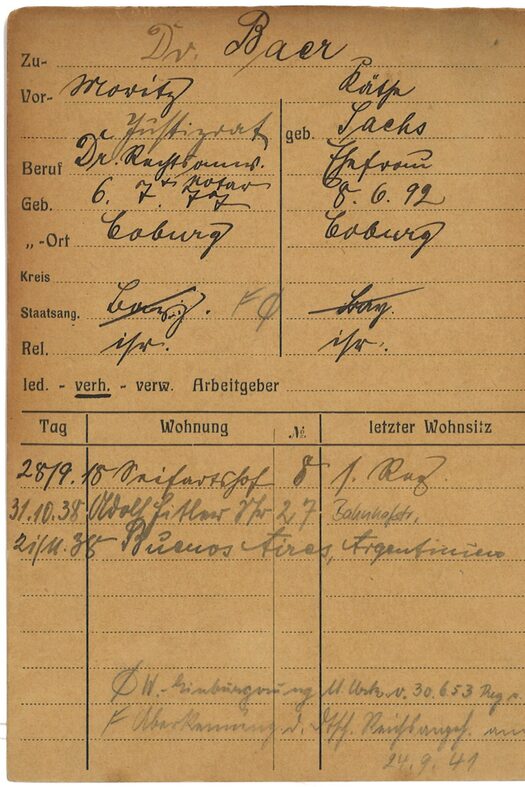 Zu- Dr. Baer
Vor- Moritz Käthe
Justizrat geb. Sachs
Beruf Dr. Rechtsanw. Ehefrau
Notar
Geb. 6. 7. 77 8. 6. 92
„-Ort Coburg Coburg
Kreis
Staatsang. F Ø Bay.
Rel. isr. isr.
led. - verh. - verw. Arbeitgeber
Tag Wohnung № letzter Wohnsitz
28/9. 18 Seifartshof 8 s. Reg.
31.10.38 Adolf Hitler Str 27 Bahnhofstr.
38 Buenos Aires, Argentinien
Ø W.-Einbürgerung Urk. v. 30.6.53 Reg
F Aberkennung d. dtsch. Reichsangeh. am
24.9.41